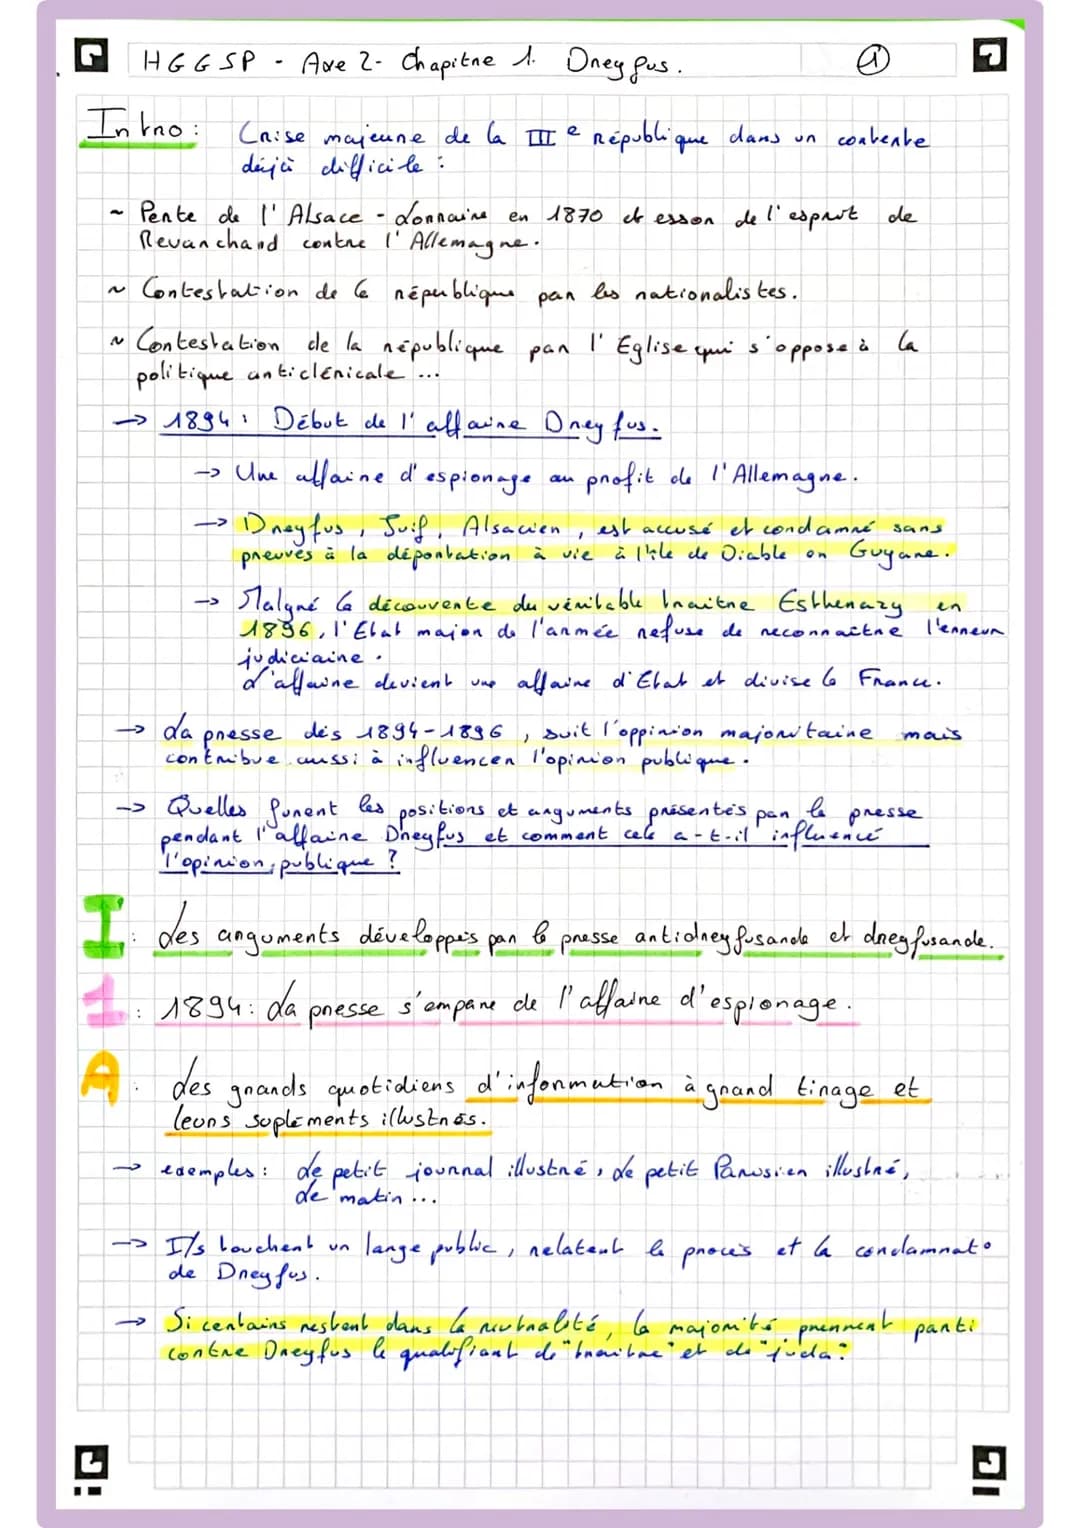 HGGSP - Axe 2 - Chapitre 1. Dreyfus. 1
Intro : Crise majeure de la IIIe république dans un contexte
déjà difficile :
~ Perte de l'Alsace - Lorraine en 1870 et essor de l'esprit de
Revanchard contre l'Allemagne.
~ Contestation de la république par les nationalistes.
~ Contestation de la république par l'Eglise qui s'oppose à la
politique anticléricale ...
→ 1894 : Début de l'affaire Dreyfus.
→ Une affaire d'espionage au profit de l'Allemagne.
→ Dreyfus, Juif, Alsacien, est accusé et condamné sans
preuves à la déportation à vie à l'île de Diable en Guyane.
→ Malgré la découverte du véritable traitre Estherazy en
1896, l'Etat major de l'armée refuse de reconnaitre l'erreur
judiciaire.
L'affaire devient une affaire d'Etat et divise la France.
→ La presse dès 1894-1896, suit l'oppinion majoritaire mais
contribue aussi à influencer l'opinion publique.
→ Quelles furent les positions et arguments présentés par la presse
pendant l'affaire Dreyfus et comment cela a-t-il influencé
l'opinion publique ?
I : Les arguments développés par la presse antidreyfusarde et dreyfusarde.
1 : 1894 : La presse s'empare de l'affaire d'espionage.
A : Les grands quotidiens d'information à grand tirage et
leurs supléments illustrés.
→ exemples : Le petit journal illustré, Le petit Parisien illustré,
Le matin ...
→ Ils touchent un large public, relatent le procès et la condamnat°
de Dreyfus.
→ Si certains restent dans la neutralité, la majorité prennent parti
contre Dreyfus le qualifiant de "traitre" et de "juda".